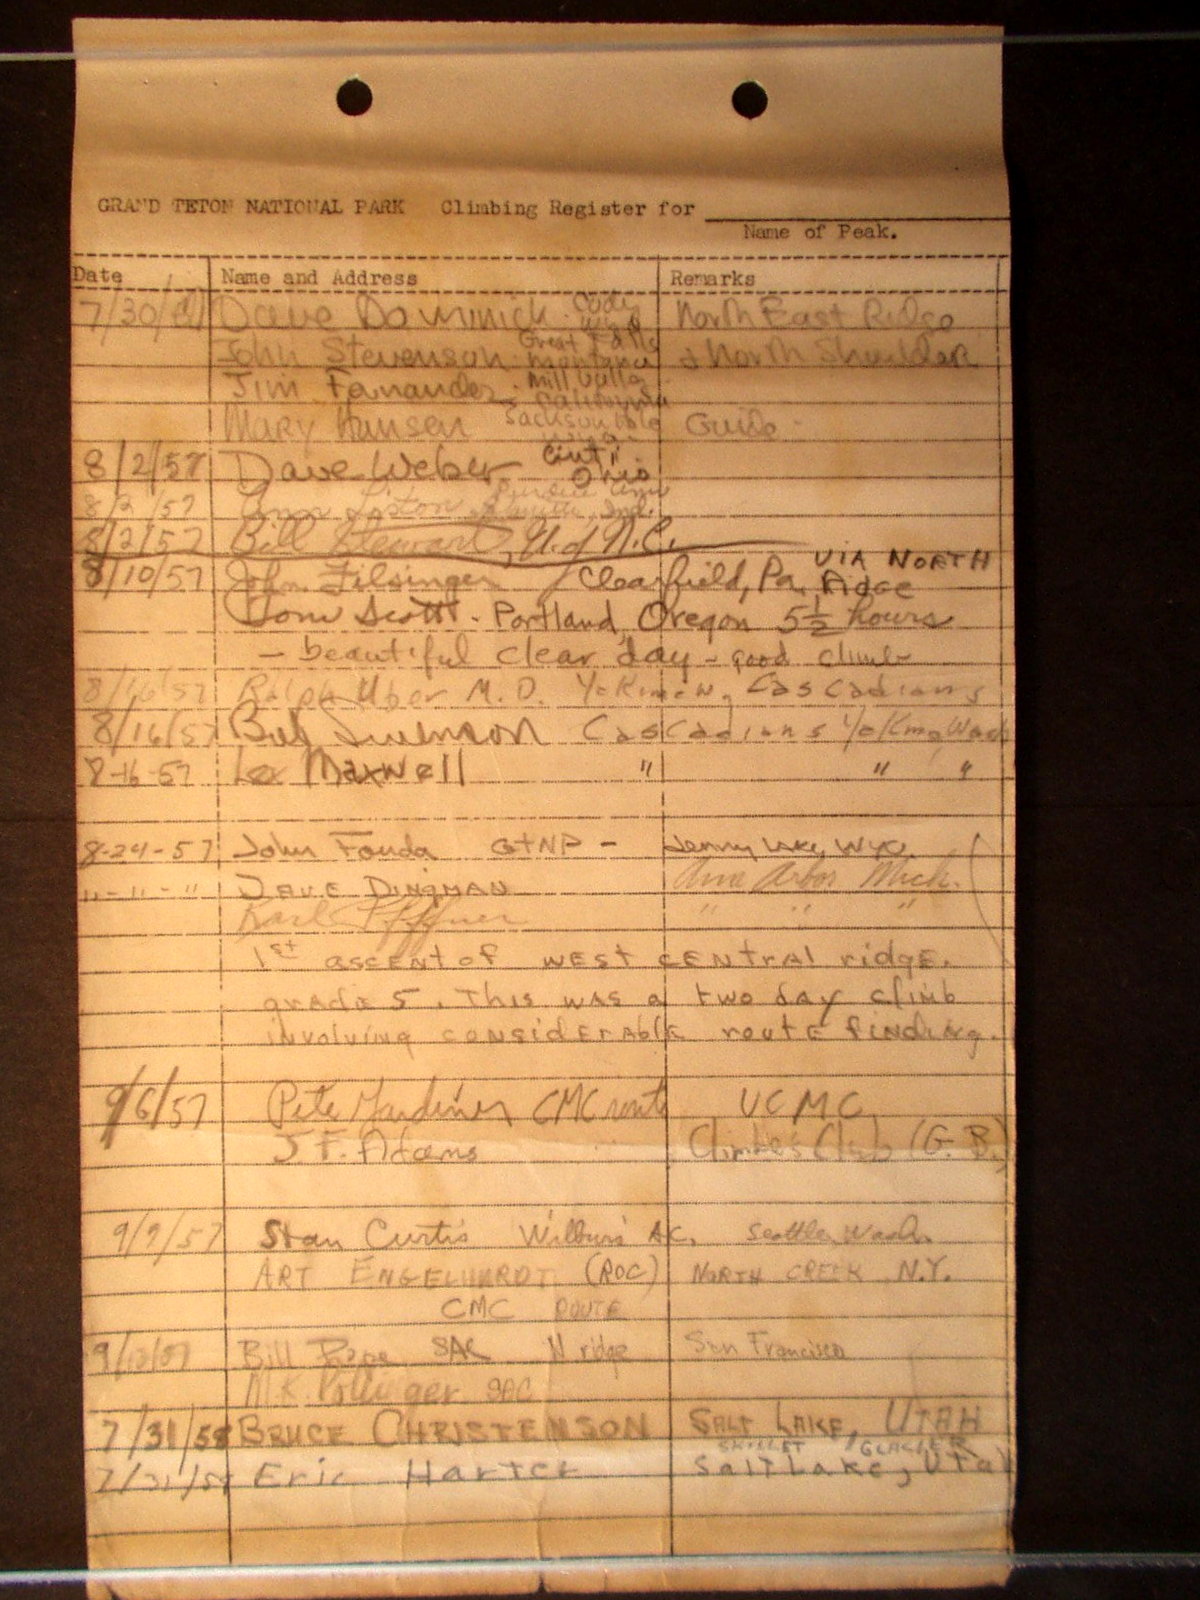 GRAND TETON NATIONAL PARK Climbing Register for
Name of Peak.
Date Name and Address Remarks
7/30/ Dave Dominick Cody North East Ridge
John Stevenson Great Falls Montana & North Shoulder
Jim Fernandez Mill Valley California
Mary Hansen Jackson Hole Guide
8/2/57 Dave Weber Cinti Ohio
8/2/57 Ind.
8/2/57 Bill Stewart, U. of N.C.
8/10/57 John Filsinger Clearfield, Pa. VIA NORTH Ridge
Tom Scott - Portland, Oregon 5½ hours
- beautiful clear day - good climb
8/16/57 Ralph Uber M.D. Cascadians
8/16/57 Bob Swenson Cascadians Wash
8-16-57 Lex Maxwell " " "
8-24-57 John Fonda GTNP - Jenny Lake, Wyo.
" - " - " DAVE DINGMAN Ann Arbor Mich.
Karl Pfiffner " " "
1st ascent of west central ridge.
grade 5. This was a two day climb
involving considerable route finding.
9/6/57 Pete Gardiner CMC route UCMC
J. F. Adams Climbers Club (G. B.)
9/9/57 Stan Curtis AC. Seattle, Wash.
ART ENGELHARDT (ROC) NORTH CREEK N.Y.
CMC ROUTE
Bill SAC N ridge San Francisco
M.K. SAC
7/31/58 BRUCE CHRISTENSON SALT LAKE, UTAH
SKILLET GLACIER
7/31/58 Eric Salt Lake, Utah